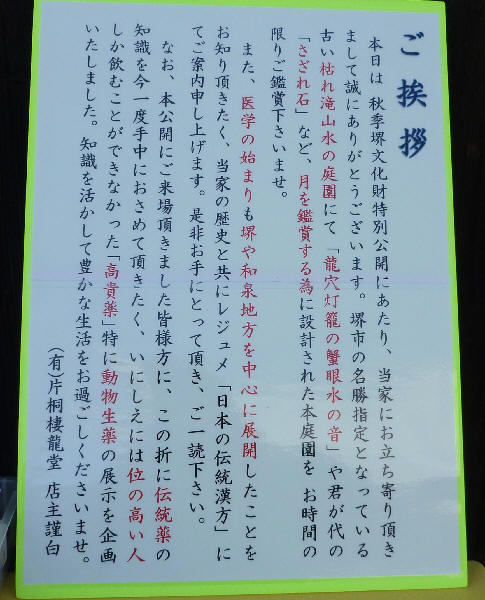 ご挨拶
本日は 秋季堺文化財特別公開にあたり、当家にお立ち寄り頂き
まして誠にありがとうございます。堺市の名勝指定となっている
古い枯れ滝山水の庭園にて「龍穴灯籠の蟹眼水の音」や君が代の
「さざれ石」など、月を鑑賞する為に設計された本庭園を お時間の
限りご鑑賞下さいませ。
また、医学の始まりも堺や和泉地方を中心に展開したことを
お知り頂きたく、当家の歴史と共にレジュメ「日本の伝統漢方」に
てご案内申し上げます。是非お手にとって頂き、ご一読下さい。
なお、本公開にご来場頂きました皆様方に、この折に伝統薬の
知識を今一度手中におさめて頂きたく、いにしえには位の高い人
しか飲むことができなかった「高貴薬」特に動物生薬の展示を企画
いたしました。知識を活かして豊かな生活をお過ごしくださいませ。
(有)片桐棲龍堂 店主謹白